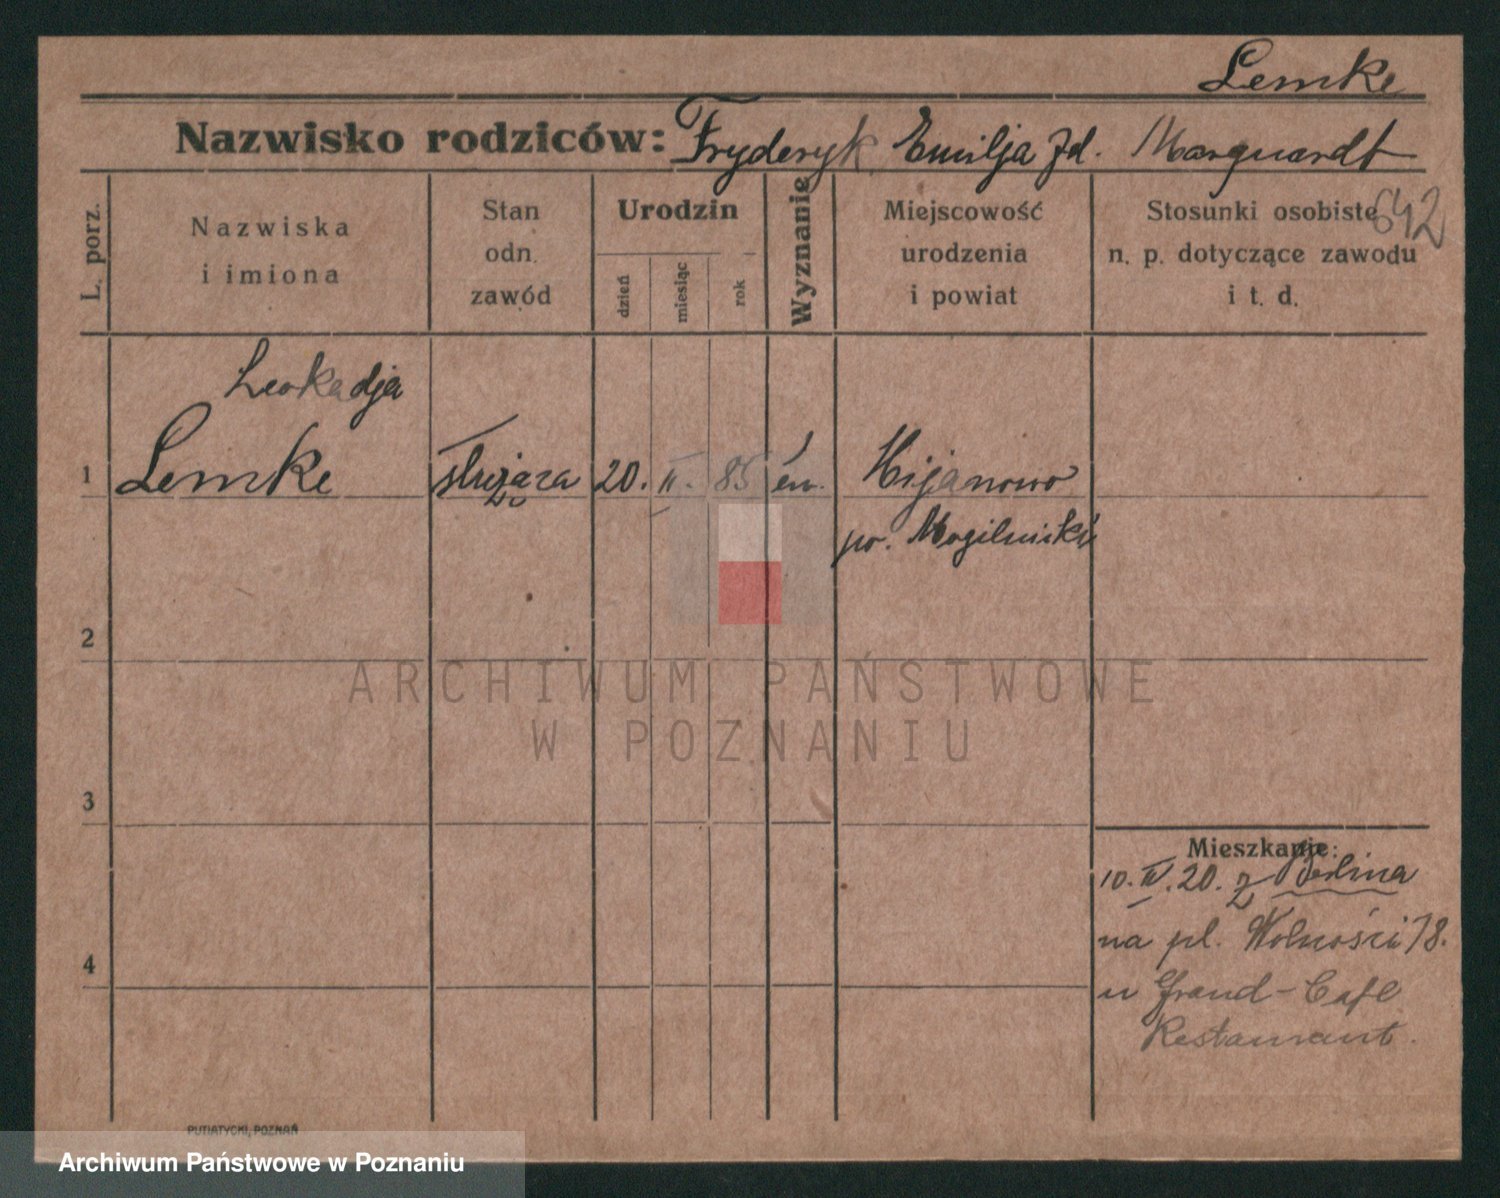 Lemke
Nazwisko rodziców: Fryderyk Emilja zd. Marquardt
642
L. porz.
Nazwiska
i imiona
Stan
odn.
zawód
Urodzin
dzień
miesiąc
rok
Wyznanie
Miejscowość
urodzenia
i powiat
Stosunki osobiste
n. p. dotyczące zawodu
i t. d.
Leokadja
1 Lemke służąca 20. II. 85 ew.
po. Mogilnicki
2
3
4
Mieszkanie:
10. IV. 20. z Berlina
na pl. Wolności 18.
u Grand-Cafe
Restaurant.
PUTIATYCKI, POZNAŃ
ARCHIWUM PAŃSTWOWE
W POZNANIU
Archiwum Państwowe w Poznaniu